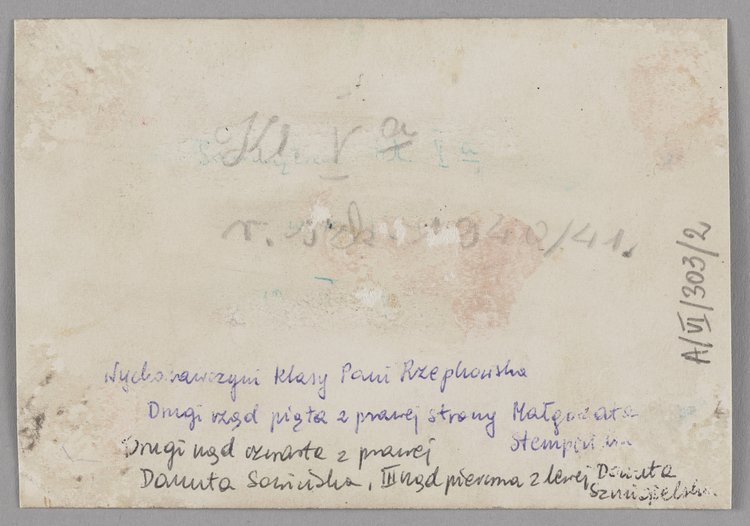 Kl V a
r. szk. 1940/41.
A/VI/303/2
Wychowawczyni klasy Pani Rzepkowska
Drugi rząd piąta z prawej strony Małgorzata
Drugi rząd czwarta z prawej
Danuta, III rząd pierwsza z lewej Danuta